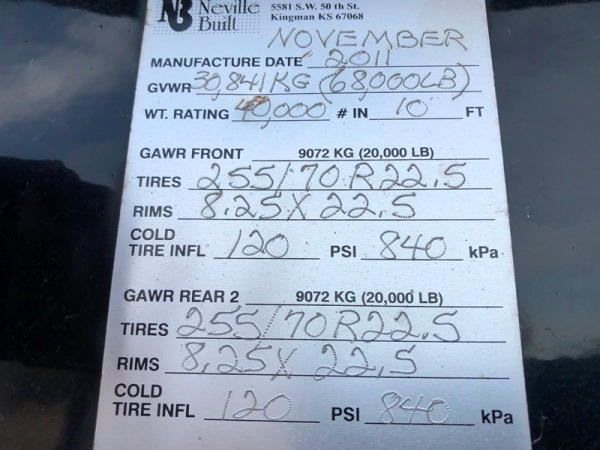 NB Neville Built
5581 S.W. 50 th St.
Kingman KS 67068
NOVEMBER
MANUFACTURE DATE 2011
GVWR 30,841KG (68,000LB)
WT. RATING 40,000 # IN 10 FT
GAWR FRONT 9072 KG (20,000 LB)
TIRES 255/70R22.5
RIMS 8.25X22.5
COLD
TIRE INFL 120 PSI 840 kPa
GAWR REAR 2 9072 KG (20,000 LB)
TIRES 255/70R22.5
RIMS 8,25X 22,5
COLD
TIRE INFL 120 PSI 840 kPa